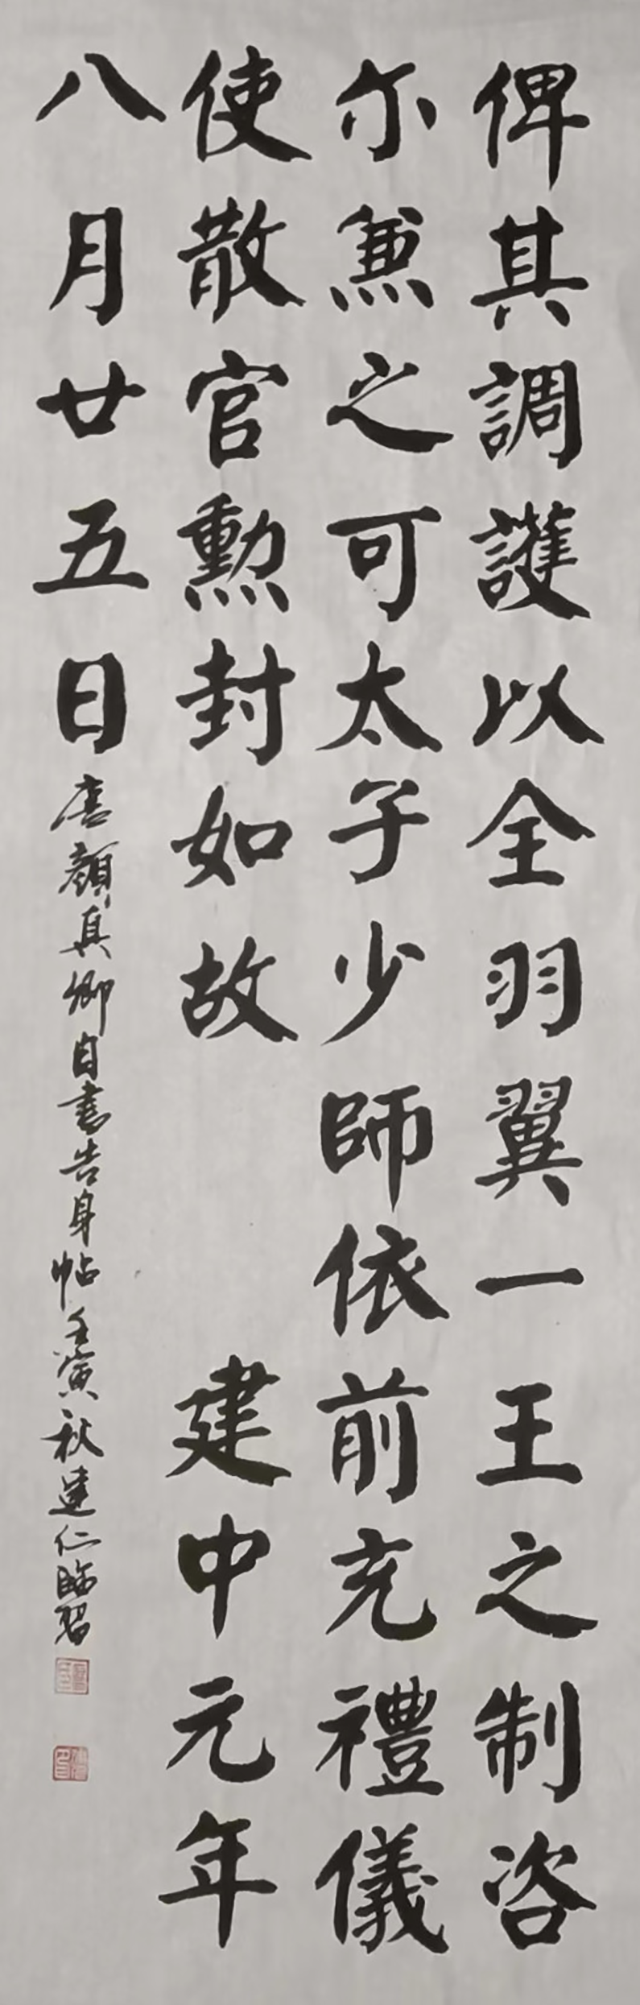 俾其調護以全羽翼一王之制咨
尔兼之可太子少師依前充禮儀
使散官勲封如故 建中元年
八月廿五日
唐顔真卿自書告身帖壬寅秋達仁臨習